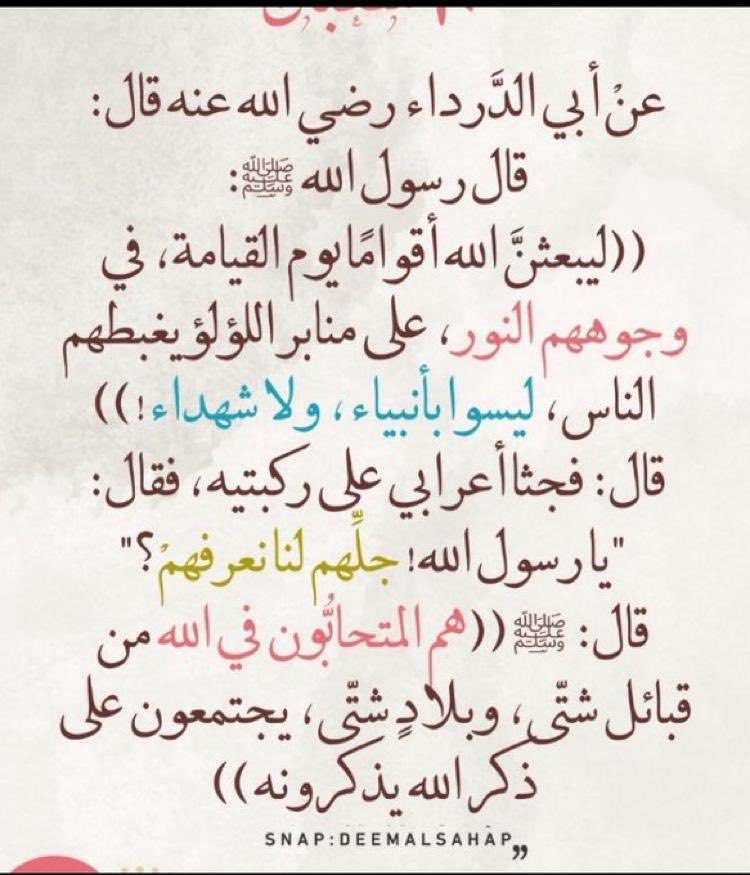 عنْ أبي الدَّرداء رضي الله عنه قال:
قال رسول الله ﷺ:
((ليبعثنَّ الله أقوامًا يوم القيامة، في
وجوههم النور، على منابر اللؤلؤ يغبطهم
الناس، ليسوا بأنبياء، ولا شهداء!))
قال: فجثا أعرابي على ركبتيه، فقال:
"يا رسول الله! جلِّهم لنا نعرفهمْ؟"
قال: ﷺ ((هم المتحابُّون في الله من
قبائل شتّى، وبلادٍ شتّى، يجتمعون على
ذكر الله يذكرونه))
SNAP:DEEMALSAHAP„